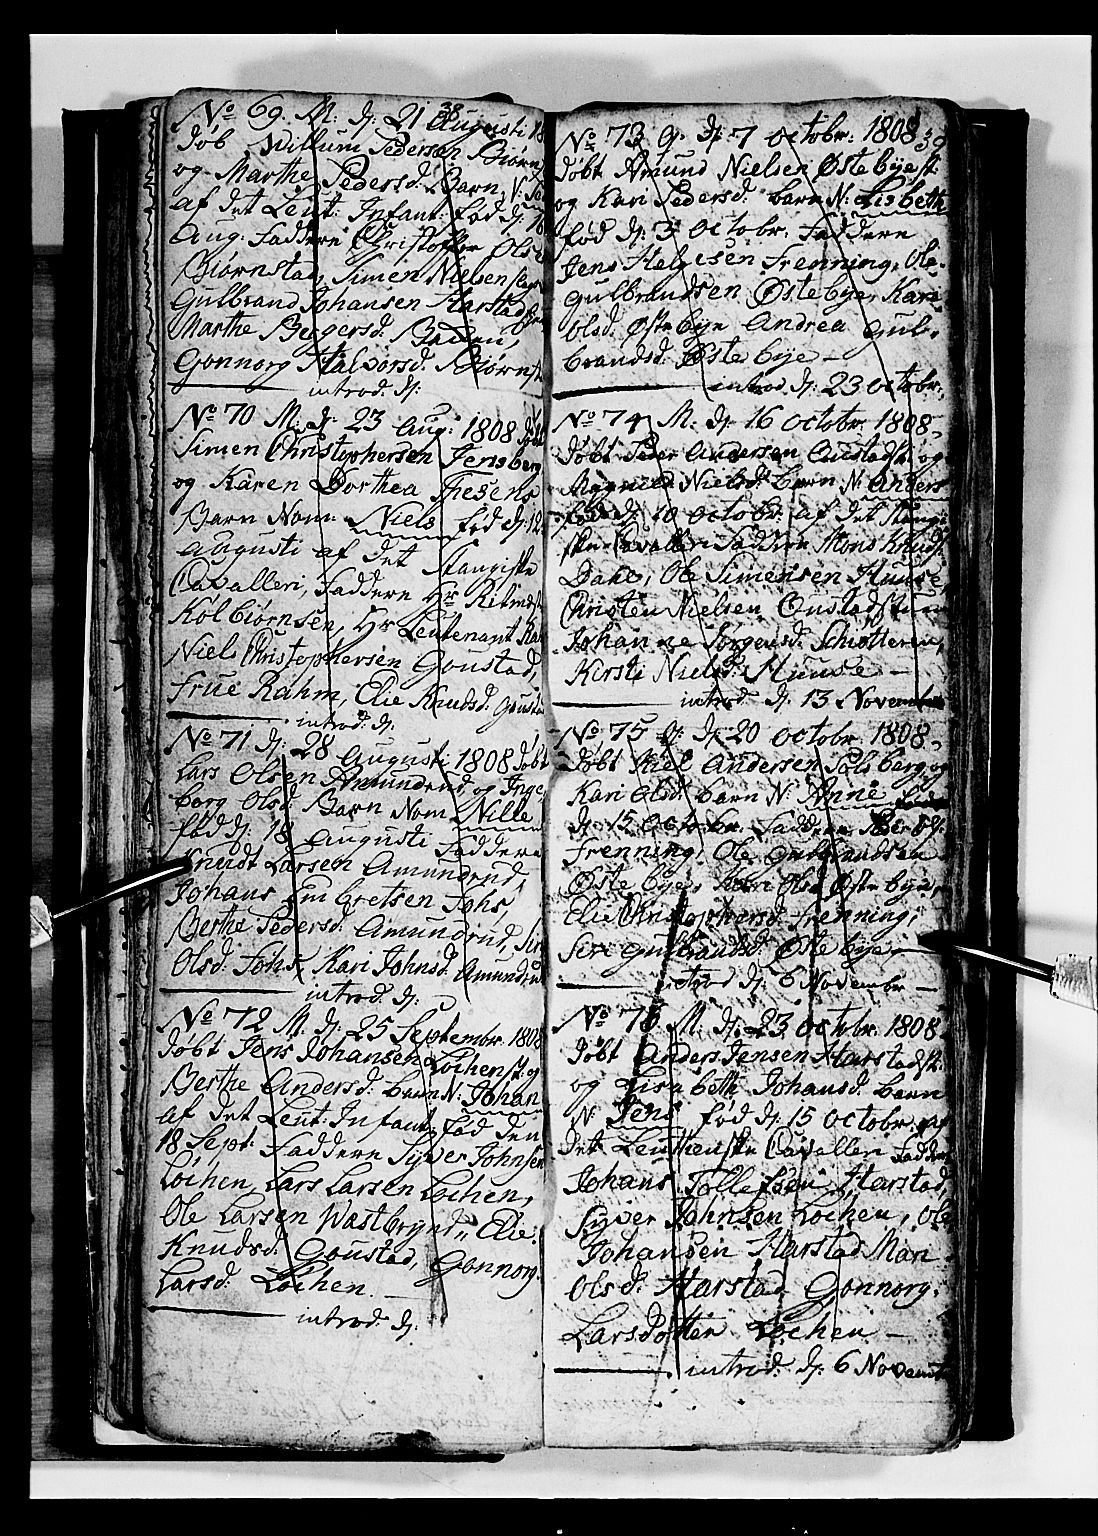 38
No 69. M. dj. 21 Augusti 18
døb Willum Pedersen Biørn
og Marthe Pedersd. Barn,
af det Leut: Infant: fød dj. 16
Aug: Faddere Christoffer Olse
Biørnstad, Simen Nielsen
Gulbrand Johansen Harstad
Marthe Birgersd.
Gonnorg Halvorsd. Biørnst
introd. dj.
No 70 M. dj. 23 Aug: 1808 døbt
Simen Christophersen Jensberg
og Karen Dorthea Thesens
Barn Nom. Niels fød dj. 12
Augusti af det Stangiske
Cavalleri, Faddere Hr Ritmest
Kolbiørnsen, Hr Leutenant
Niels Christophersen Goustad,
Frue Rahm, Elie Knudsd. Goustad
introd. dj.
No 71 dj. 28 Augusti 1808 døbt
Lars Olsen Amundrud og Inge,
borg Olsd. Barn Nom. Nille
fød dj. 18 Augusti Faddere
Knudt Larsen Amundrud,
Johans Embretsen Fohs,
Berthe Pedersd. Amundrud, Siri
Olsd. Fohs, Kari Johnsd. Amundrud
introd. dj.
No 72 M. dj. 25 Septembr. 1808
døbt Jens Johansen Lochenst: og
Berthe Andersd. barn N: Johan
af det Leut: Infant: fød den
18 Sept. Faddere Syver Johnsen
Lochen, Lars Larsen Lochen,
Ole Larsen Wastbrynd, Elie.
Knudsd. Goustad, Gonnorg.
Larsd. Lochen.
introd. dj.
39
No 73 G. dj. 7 Octobr. 1808.
døbt Amund Nielsen Østebyest:
og Kari Pedersd. barn N: Lisbeth
fød dj. 3 Octobr. Faddere
Jens Helgesen Frenning, Ole.
Gulbrandsen Østebye, Kari
Olsd. Østebye Andrea Gul.
brandsd. Østebye —
introd. dj. 23 Octobr.
No 74 M. dj. 16 Octobr. 1808.
døbt Peder Andersen Oustadst. og
Magnild Nielsd. barn N: Anders
fød dj. 10 Octobr. af det Stangi
ske Cavalleri Faddere Mons Knuds
Dahl, Ole Simensen Huuse,
Christen Nielsen Oustadst:
Johanne Jørgensd. Schiøtteren,
Kirsti Nielsd. Huuse —
introd. dj. 13 November
No 75 G. dj. 20 Octobr. 1808.
døbt Niel Andersen Polsberg og
Kari Olsd. barn N. Anne
dj. 15 Octobr. Faddere Peder
Frenning, Ole Gulbrandsen
Østebye, Kari Olsd. Østebye,
Elie Christophersd. Frenning;
Siri Gulbrandsd. Østebye —
introd dj. 6 Novembr —
No 76 M. dj. 23 Octobr. 1808.
døbt Anders Jensen Harstadst:
og Lisabeth Johansd. barn
N. Jens fød dj. 15 Octobr. af
det Leuthenske Cavalleri Faddere
Johans Tollefsen Harstad,
Syver Johnsen Lochen, Ole
Johansen Harstad Mari
Olsd. Harstad Gonnorg.
Larsdotter Lochen —
introd. dj. 6 Novembr